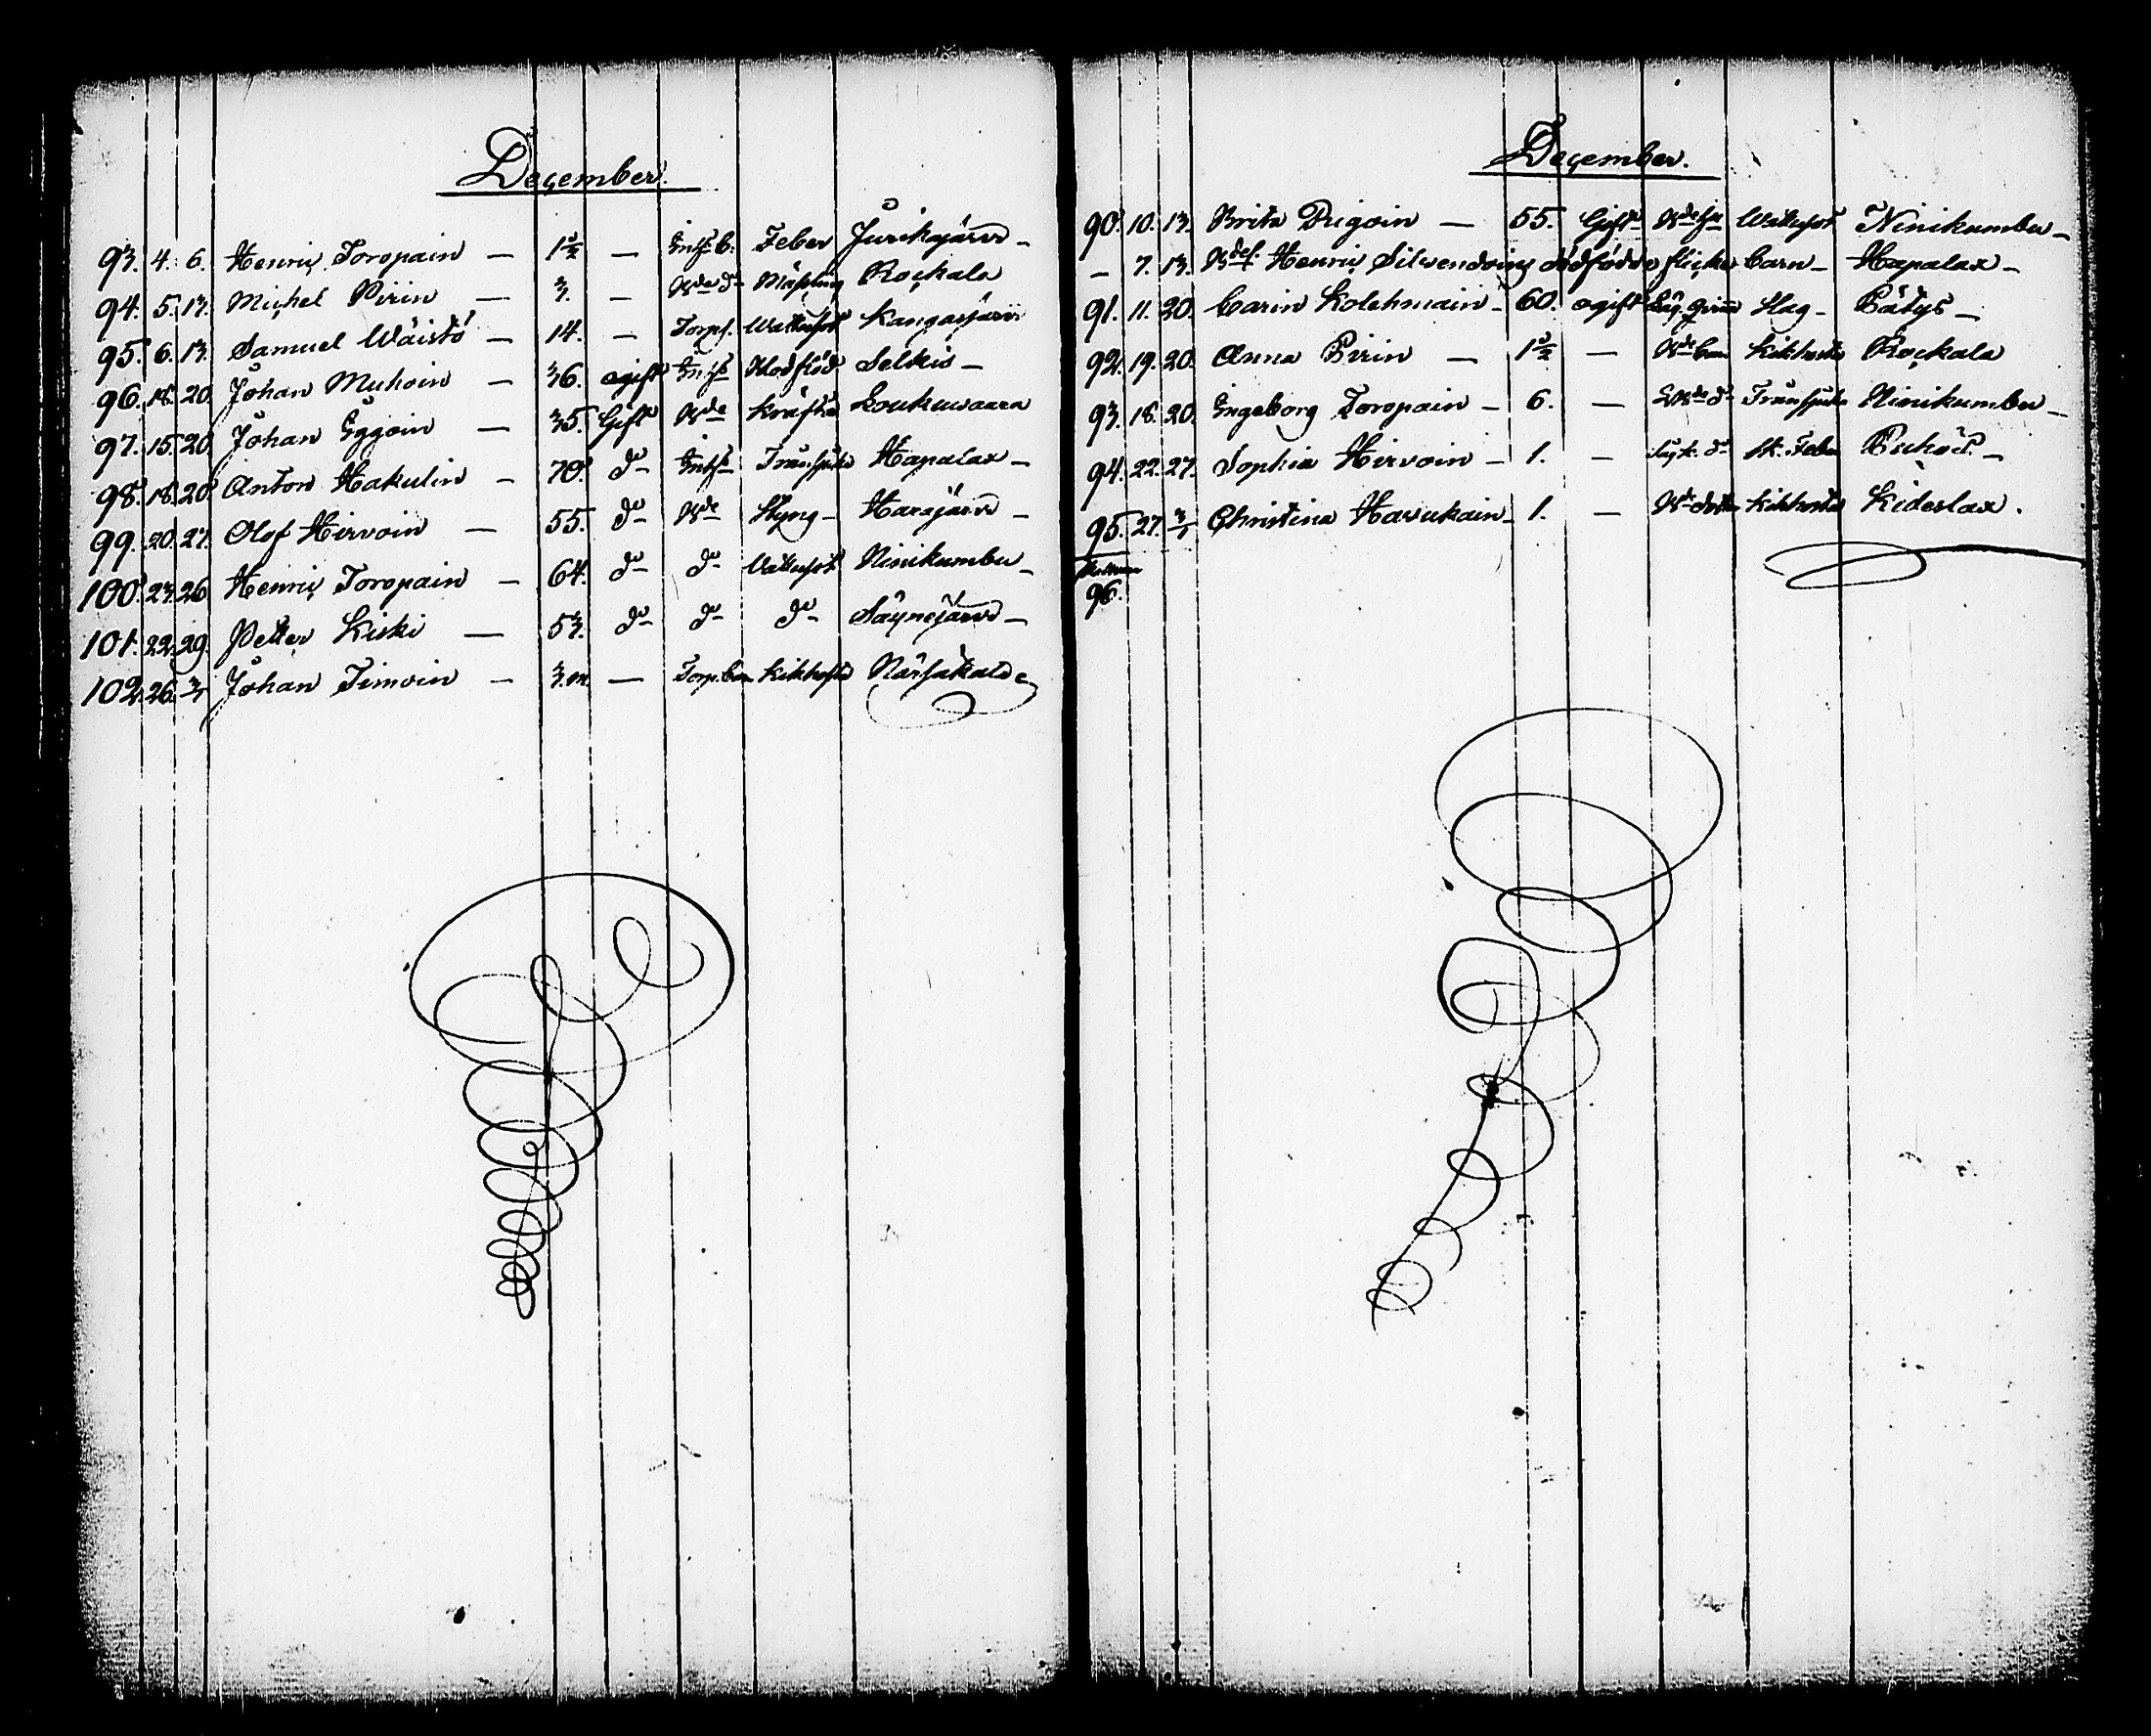 December.
93. 4. 6. Henric Toropain — 1 1/2 — Inhs. b. Feber Jurikajärvi —
94. 5. 13. Michel Pirin — 3. — Bde d:o Mäßling Rockala
95. 6. 13. Samuel Wäistö — 14. — Torps. Wattusot Kangasjärvi
96. 18. 20. Johan Muhoin — 36. ogift Inhs Blodflöd Selkis —
97. 15. 20. Johan Eggoin — 35. Gift Bde Kräfta Loukuwaara
98. 18. 20. Anton Hakulin — 70. d:o Inhs Trånsjuka Hapalax —
99. 20. 27. Olof Hirvoin — 55. d:o Bde Styng — Harajärvi —
100. 23. 26. Henric Toropain — 64. d:o d:o Vattusot Ninikumbu —
101. 22. 29. Petter Kiski — 53. d:o d:o d:o Säynejärvi —
102. 26. 3/1 Johan Timoin — 3. m. — Torp. barn Kikhosta Närsäkala
December.
90. 10. 13. Brita Drigoin — 55. Gift Wattusot Ninikumbu —
— 7. 13. Bdef. Henric Silwendoing dödfödde flicke barn — Hapalax —
91. 11. 20. Carin Kolehmain — 60. ogift Slag — Pätys —
92. 19. 20. Anna Pirin — 1 1/2 — Bde barn Kikhosta Rockala
93. 18. 20. Ingeborg Toropain — 6. — d:o Trånsjuka Ninikumbu —
94. 22. 27. Sophia Hirvoin — 1. — d:o H. Feber Puhos —
95. 27. 3/1 Christina Havukain — 1. — Kikhosta Kideslax.
96.